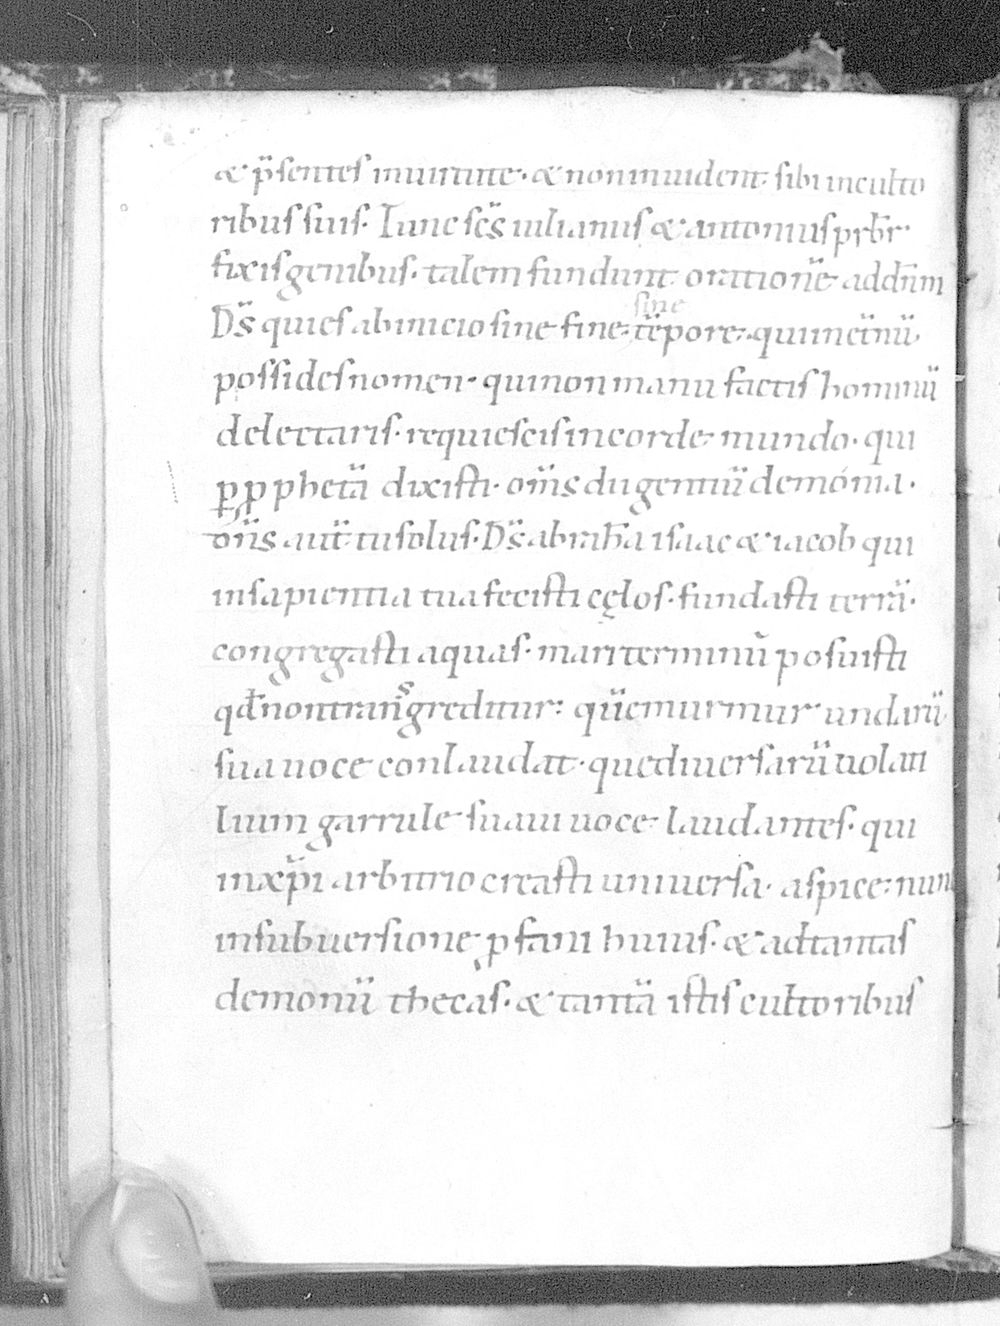 & p̄sentes inuirtute· & noninuident sibi inculto
ribus suis· Tunc sc̄s iulianus & antonius prb̄r·
fixis genibus· talem fundunt orationē addn̄m
sine
Ds̄ quies abinicio sine fine· tēpore· quiinet̄nū
possides nomen· quinon manu factis hominū
delectaris· requiescis incorde mundo· qui
ꝑ ꝓphetā dixisti· om̄s dii gentiū demónia·
om̄s aut̄ tu solus· Ds̄ abrah̄a isaac & iacob qui
insapientia tua fecisti cęlos· fundasti terrā·
congregasti aquas· mari terminū posuisti
qd̄ nontransgreditur: quē murmur undarū
sua uoce conlaudat· quediuersarū uolati
lium garrule suaui uoce laudantes· qui
inxp̄i arbitrio creasti uniuersa· aspice nun
insubuersione ꝓfani huius· & adtantas
demonū thecas· & tantā istis cultoribus